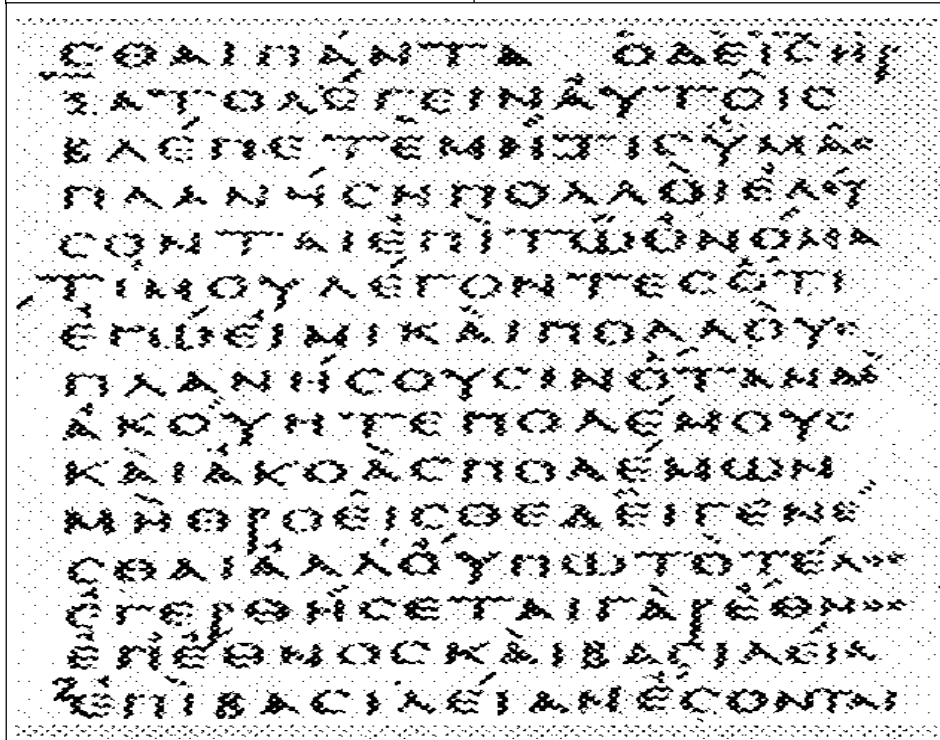 CΘΑΙΠΑΝΤΑ ΟΔΕΙCΗΡ
ΞΑΤΟΛΕΓΕΙΝΑΥΤΟΙC
ΒΛΕΠΕΤΕΜΗΤΙCΥΜΑC
ΠΛΑΝΗCΗΠΟΛΛΟΙΕΛΕΥ
CΟΝΤΑΙΕΠΙΤΩΟΝΟΜΑ
ΤΙΜΟΥΛΕΓΟΝΤΕCΟΤΙ
ΕΓΩΕΙΜΙΚΑΙΠΟΛΛΟΥC
ΠΛΑΝΗCΟΥCΙΝΟΤΑΝΔΕ
ΑΚΟΥΗΤΕΠΟΛΕΜΟΥC
ΚΑΙΑΚΟΑCΠΟΛΕΜΩΝ
ΜΗΘΡΟΕΙCΘΕΔΕΙΓΕΝΕ
CΘΑΙΑΛΛΟΥΠΩΤΟΤΕΛΟC
ΕΓΕΡΘΗCΕΤΑΙΓΑΡΕΘΝΟC
ΕΠΕΘΝΟCΚΑΙΒΑCΙΛΕΙΑ
ΕΠΙΒΑCΙΛΕΙΑΝΕCΟΝΤΑΙ